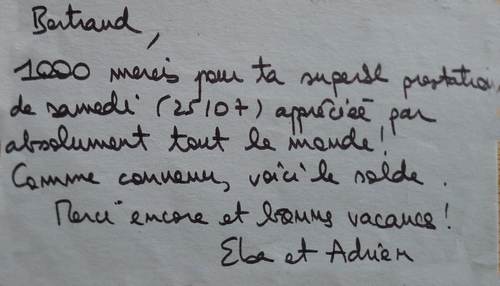 Bertrand,
1000 mercis pour ta superbe prestation
de samedi (25/07) appréciée par
absolument tout le monde !
Comme convenu, voici le solde.
Merci encore et bonnes vacances !
Elsa et Adrien